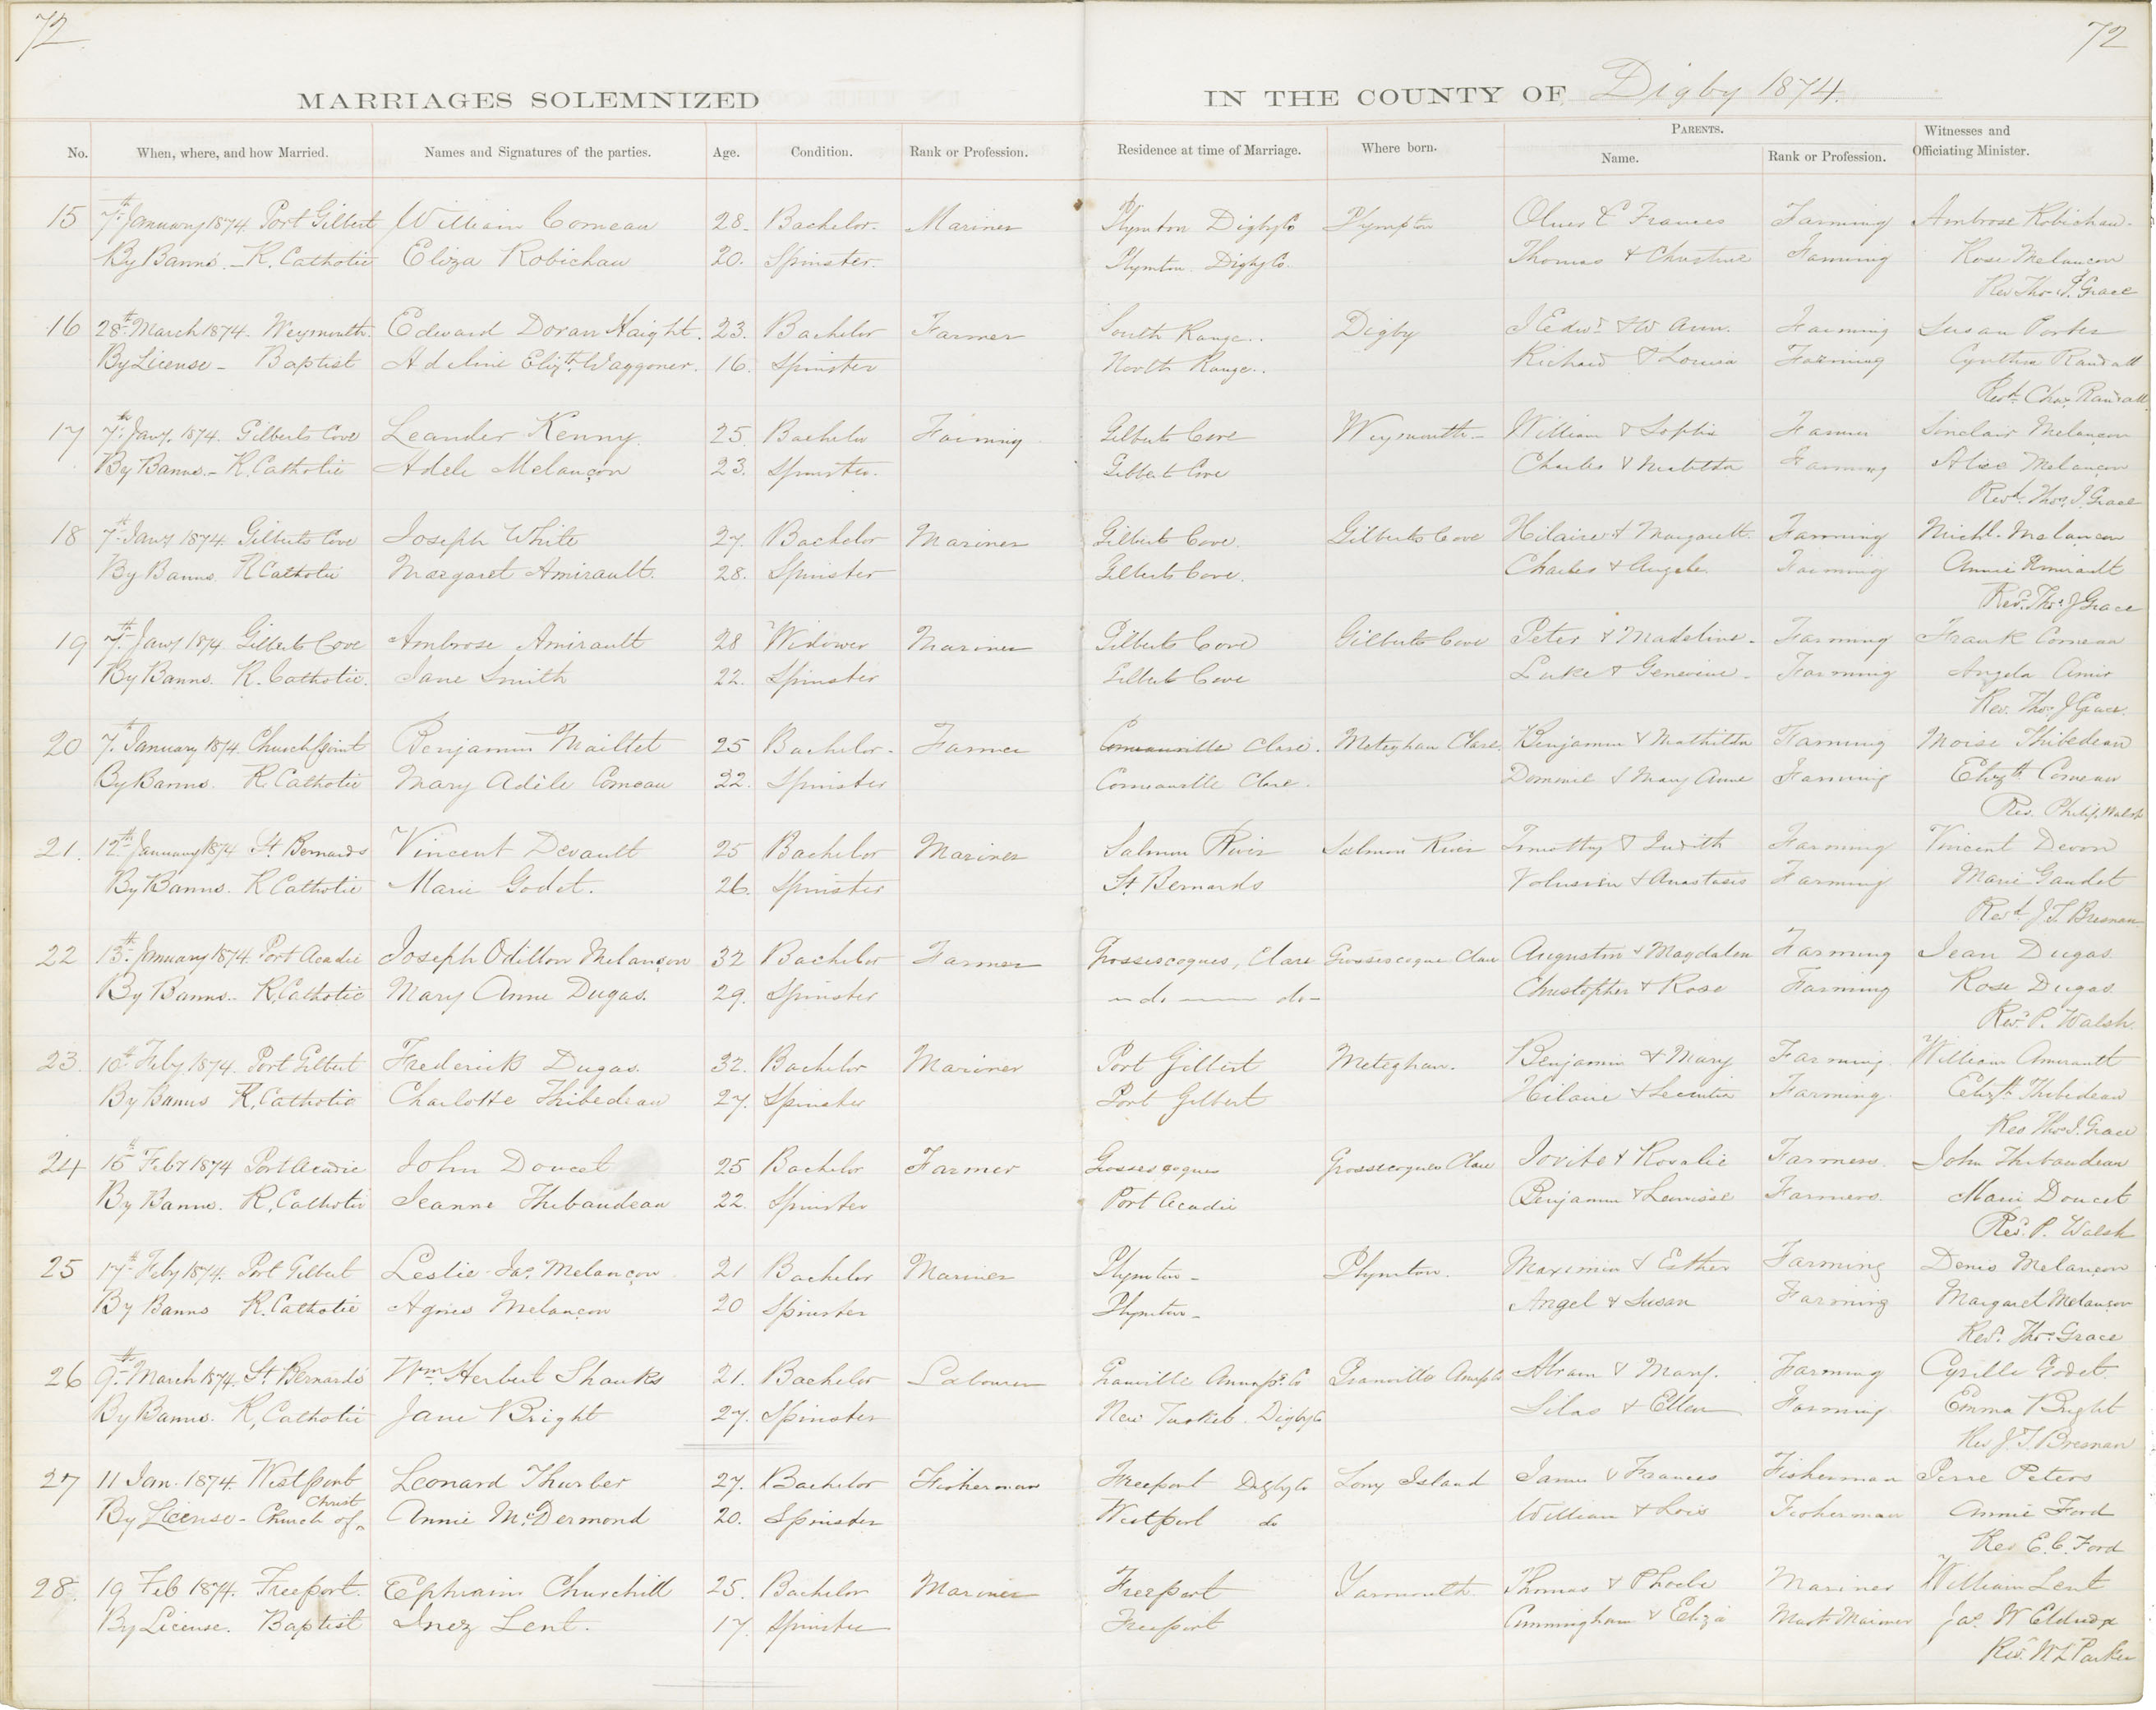 72
72
MARRIAGES SOLEMNIZED IN THE COUNTY OF Digby 1874.
No. When, where, and how Married. Names and Signatures of the parties. Age. Condition. Rank or Profession. Residence at time of Marriage. Where born. PARENTS. Name. Rank or Profession. Witnesses and Officiating Minister.
15 7th January 1874 Port Gilbert William Comeau 28. Bachelor. Mariner Plymton Digby Co Plympton & Frances Farming Ambrose Robichau.
By Banns. - R. Catholic Eliza Robichau 20. Spinster. Plymton Digby Co. Thomas & Christine Farming Rose Melancon
Rev Tho. J. Grace
16 28th March 1874. Weymouth. Edward Doran Haight. 23. Bachelor Farmer South Range.. Digby Ann. Farming Susan Porter
By License - Baptist Adeline Elizth Waggoner. 16. Spinster North Range.. Richard & Louisa Farming Cynthia Randall
Revd. Chas Randall
17 7th Jany. 1874. Gilberts Cove Leander Kenny. 25. Bachelor Farming Gilberts Cove Weymouth - William & Sophia Farmer Sinclair Melançon
By Banns. - R. Catholic Adele Melançon 23. Spinster. Gilbert Cove Charles & Matilda Farming Alice Melançon
Revd. Thos. J. Grace
18 7th Jany 1874 Gilberts Cove Joseph White 27. Bachelor Mariner Gilberts Cove. Gilberts Cove Hilaire & Margarett. Farming Michl. Melancon
By Banns. R Catholic Margaret Amirault. 28. Spinster Gilberts Cove. Charles & Angele. Farming Annie Amirault
Revd. Thos J Grace
19 7th Jany 1874 Gilberts Cove Ambrose Amirault 28 Widower Mariner Gilberts Cove Gilberts Cove Peter & Madeline. Farming Frank Comeau
By Banns. R. Catholic. Jane Smith 22. Spinster Gilberts Cove Luke & Genevive. Farming Angela Amir
Rev. Thos J Grace.
20 7th January 1874. Church Point Benjamin Maillet 25 Bachelor. Farmer Comeauville Clare. Meteghan Clare. Benjamin & Mathilda Farming Moise Thibedeau
By Banns. R. Catholic Mary Adèle Comeau 22. Spinster Comeauville Clare. & Mary Anne Farming Elizth Comeau
Rev. Philip Walsh
21. 12th January 1874 St. Bernards Vincent Devault 25 Bachelor Mariner Salmon River Salmon River Timothy & Judith Farming Vincent Devon
By Banns. R Catholic Marie Godet. 26. Spinster St. Bernards & Anastasis Farming Marie Gaudet
Revd. J. T. Bresnan
22 13th January 1874. Port Acadie Joseph Odillon Melançon 32 Bachelor Farmer Grossescoques, Clare Grossescoque Clare Augustin & Magdalen Farming Jean Dugas
By Banns.. R. Catholic Mary Anne Dugas. 29. Spinster do do Christopher & Rose Farming Rose Dugas.
Revd. P. Walsh.
23. 10th Feby. 1874. Port Gilbert Frederick Dugas. 32. Bachelor Mariner Port Gilbert Meteghan. Benjamin & Mary Farming. William Amirault
By Banns R. Catholic Charlotte Thibedeau 27. Spinster Port Gilbert Hilaire & Farming. Elizth Thibedeau
Rev Thos J. Grace
24 15th Feby 1874 Port Acadie John Doucet 25 Bachelor Farmer Grosses coques Grossecoques Clare Jovite & Rosalie Farmers. John Thibaudeau
By Banns. R, Catholic Jeanne Thibaudeau 22. Spinster Port Acadie Benjamin & Farmers. Marie Doucet
Revd. P. Walsh
25 17th Feby 1874. Port Gilbert Leslie Jas. Melançon 21 Bachelor Mariner Plymton - Plymton. Maximin & Esther Farming Denis Melançon
By Banns R. Catholic Agnes Melançon 20 Spinster Plymton - Angel & Susan Farming Margaret Melançon
Revd. Thos. Grace
26 9th March 1874. St. Bernards Wm Herbert Shanks 21. Bachelor Labourer Granville Annaps. Co Granville Annps Co Abram & Mary. Farming Cyrille Godet.
By Banns. R, Catholic Jane Bright 27. Spinster New Tusket. Digby Co Silas & Ellen Farming. Emma Bright
Rev J. T. Bresnan
27 11 Jan. 1874. Westport Leonard Thurber 27. Bachelor Fisherman Freeport Digby Co Long Island James & Frances Fisherman Peters
By License - Church of Christ Annie McDermond 20. Spinster Westport do William & Lois Fisherman Annie Ford
Rev E. C. Ford
28. 19 Feb 1874. Freeport. Ephraim Churchill 25. Bachelor Mariner Freeport Yarmouth Thomas & Phoebe Mariner William Lent
By License. Baptist Inez Lent. 17. Spinster Freeport Cunningham & Eliza Mast Mariner Jas. W Eldridge
Revd. W L Parker